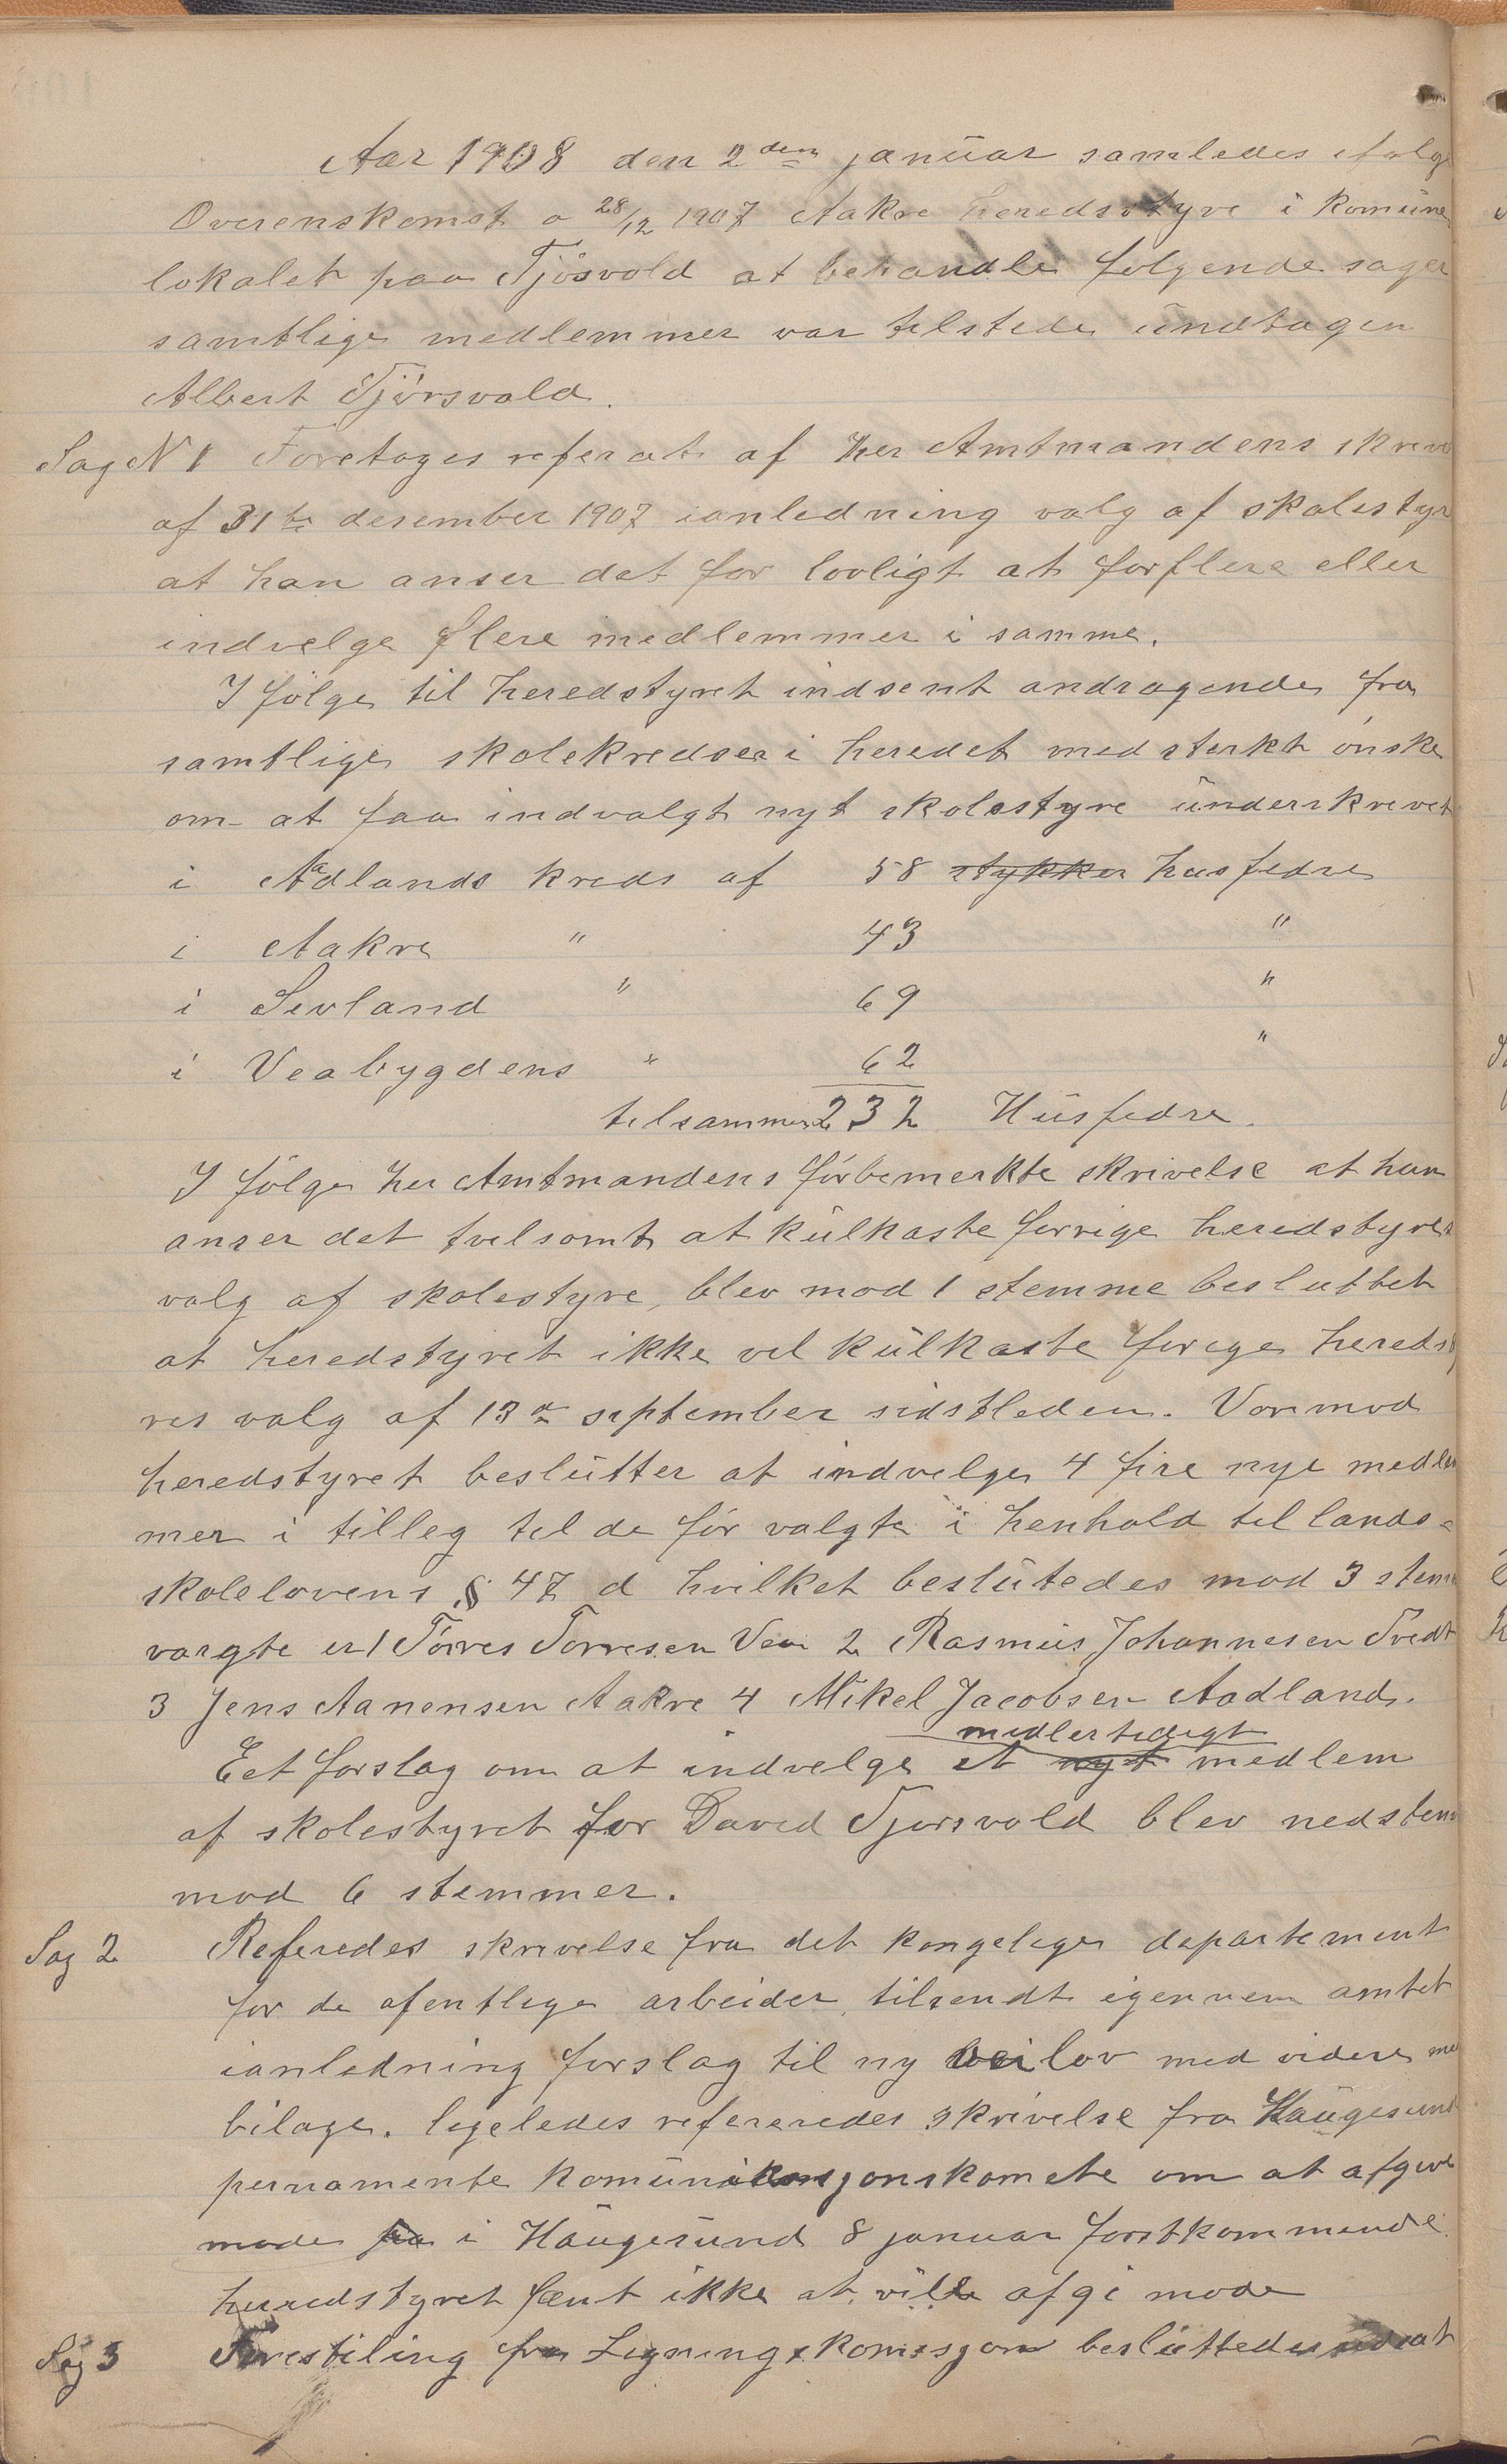 Aar 1908 den 2den januar samledes ifølge
Overenskomst a 28/12 1907 Aakre heredsstyre i Komune
lokalet paa Tjøsvold at behandle følgende sager
samtlige medlemmer var tilstede undtagen
Albert Tjørsvold.
Sag N 1 Foretoges referat af her Amtmandens skrive
af 31te desember 1907 ianledning valg af skolestyr
at han anser det for lovligt at forflere eller
indvelge flere medlemmer i samme.
I følge til heredstyret indsent andragende fra
samtlige skolekredser i heredet med sterkt ønske
om at faa indvalgt nyt skolestyre underskrevet
i Aadlands kreds af 58 stykker husfedre
i Aakre " 43 "
i Sevland " 69 "
i Veabygdens " 62 "
tilsammen 232 Husfedre.
I følge her Amtmandens førbemerkte skrivelse at han
anser det tvilsomt at kulkaste forrige heredstyres
valg af skolestyre, blev mod 1 stemme besluttet
at heredstyret ikke vil kulkaste forige heredsty
res valg af 13de september sidstleden. Vormod
heredstyret beslutter at indvelge 4 fire nye medlem
mer i tilleg til de før valgte i henhold til lands-
skolelovens § 47 d hvilket beslutedes mod 3 stem
vargte er 1 Torres Torresen Vea 2 Rasmus Johannesen Tvedt
3 Jens Aanensen Aakre 4 Mikel Jacobsen Aadland.
medlertidigt
Eet forslag om at indvelge et nyt medlem
af skolestyret for David Tjorsvold blev nedstem
mod 6 stemmer.
Sag 2 Referedes skrivelse fra det kongelige departement
for de ofentlige arbeider, tilsendt igennem amtet
ianledning forslag til ny veilov med videre med
bilage. ligeledes refereredes skrivelse fra Haugesund
pernamente Komunikasjonskomete om at afgive
møde fra i Haugesund 8 januar førstkommende.
heredstyret fant ikke at ville afgi møde
Sag 3 Forestiling fra Ligningskomisjon besluttedes